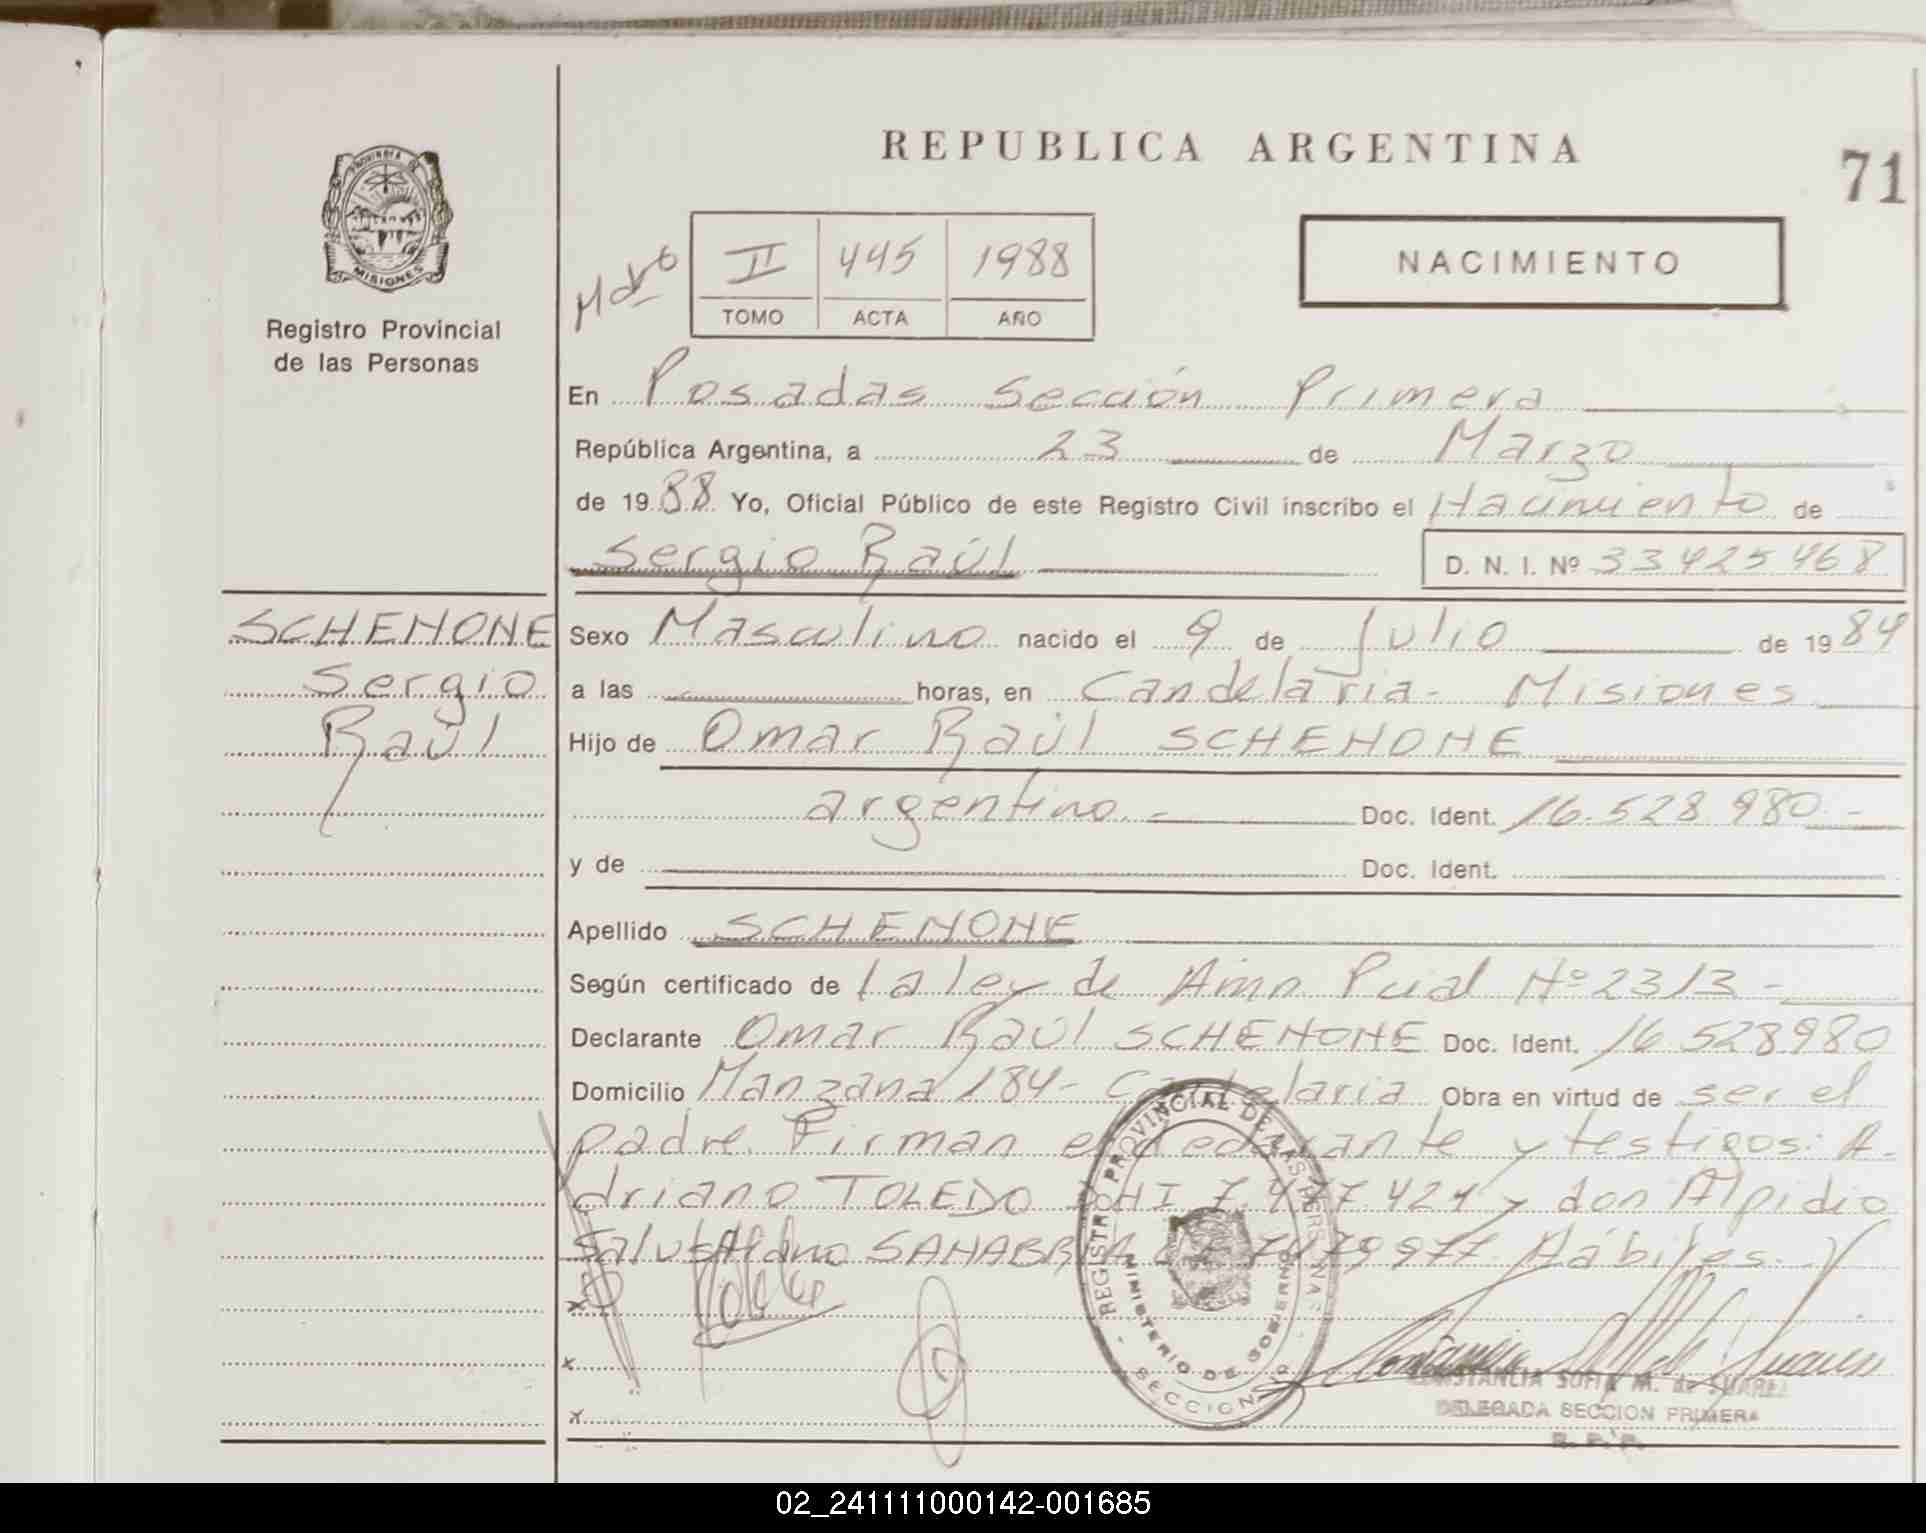 REPUBLICA ARGENTINA
71
PROVINCIA DE
MISIONES
Registro Provincial
de las Personas
II 445 1988
TOMO ACTA AÑO
NACIMIENTO
En Posadas Sección Primera
República Argentina, a 23 de Marzo
de 1988 Yo, Oficial Público de este Registro Civil inscribo el Nacimiento de
Sergio Raúl D. N. I. Nº 33425468
SCHENONE
Sergio
Raúl
Sexo Masculino nacido el 9 de Julio de 1984
a las horas, en Candelaria - Misiones
Hijo de Omar Raúl SCHENONE
argentino.- Doc. Ident. 16.528.980.-
y de Doc. Ident.
Apellido SCHENONE
Según certificado de la ley de Amn. Pcial Nº 2313-
Declarante Omar Raúl SCHENONE Doc. Ident. 16 528980
Domicilio Manzana 184- Candelaria Obra en virtud de ser el
padre. Firman el declarante y testigos: A-
driano TOLEDO y don Alpidio
SANABRIA Hábiles.
x
x
x
REGISTRO PROVINCIAL DE LAS PERSONAS
MINISTERIO DE GOBIERNO
SECCION
CONSTANCIA SOFIA M. de SUAREZ
DELEGADA SECCION PRIMERA
R. P. P.
02_241111000142-001685